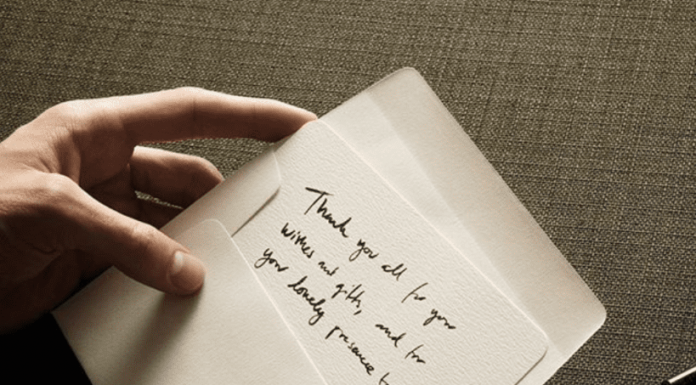 Thank you all for your
wishes and gifts, and for
your lovely presence